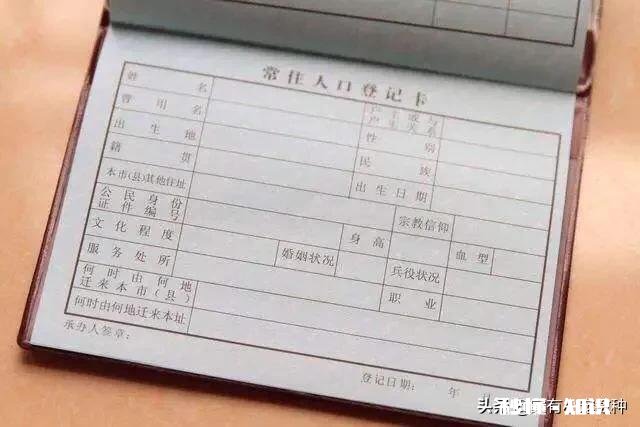 常住人口登记卡
姓名 户主或与户主关系
曾用名 性别
出生地 民族
籍贯 出生日期
本市(县)其他住址 宗教信仰
公民身份证件编号 身高 血型
文化程度 婚姻状况 兵役状况
服务处所 职业
何时由何地迁来本市(县)
何时由何地迁来本址
承办人签章: 登记日期: 年
头条